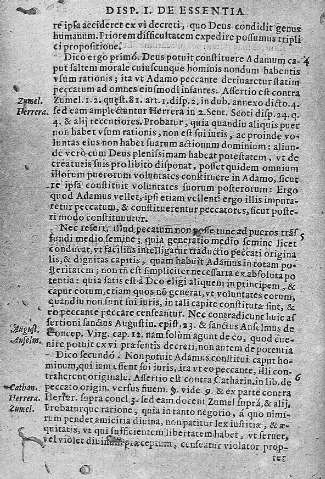 DISP. I. DE ESSENTIA
re ipsa accideret ex vi decreti, quo Deus condidit genus
humanum. Priorem difficultatem expedire possumus tripli
ci propositione.
Dico ergo primò. Deus potuit constituere Adamum ca- 4
put saltem morale cuiuscunque hominis nondum habentis
vsum rationis; ita vt Adamo peccante deriuaretur statim
peccatum ad omnes eiusmodi infantes. Assertio est contra
Zumel. Zumel. 1. 2. quæst. 81. art. 1. disp. 2. in dub. annexo dicto. 4.
Herrera. sed eam amplectuntur Herrera in 2. Sent. Scoti disp. 24. q.
4. & alij recentiores. Probatur, quia quandiu aliquis puer
non habet vsum rationis, non est sui iuris, ac proinde vo-
luntas eius non habet suarum actionum dominium: aliun-
de verò cum Deus plenissimam habeat potestatem, vt de
creaturis suis pro libito disponat, posset quidem omnium
illorum puerorum voluntates constituere in Adamo, sicut
re ipsa constituit voluntates suorum posterorum: Ergo
quod Adamus vellet, ipsi etiam vellent: ergo illis imputa-
retur peccatum, & constituerentur peccatores, sicut poste-
ri modo constituuntur.
Nec refert, illud peccatum non posse tunc ad pueros trās 5
fundi medio semine; quia generatio medio semine licet
conducat, vt facilius intelligatur traductio peccati origina
lis, & dignitas capitis, quam habuit Adamus in totam po-
steritatem; non tñ est simpliciter necessaria ex absoluta po
tentia: quia satis est à Deo eligi aliquem in principem, &
caput eorum, etiam quos nō generat, vt voluntates eorum,
quandiu non sunt sui iuris, in tali capite constitutæ sint, &
eo peccante peccare censeantur. Nec contradicunt huic as
August. sertioni sanctus Augustin. epist. 23. & sanctus Anselmus de
Anselm. Concep. Virg. cap. 12. nam solùm agunt de eo, quod eue-
nire potuit ex vi præsentis decreti, non autem de potentia
Dico secundò. Non potuit Adamus constitui caput ho- 6
minum, qui iam essent sui iuris, ita vt eo peccante, illi con-
traherent originale. Assertio est contra Catharin. in lib. de
Cathar. peccato origin. versus finem §. vide 9. & ex parte contra
Herrera. Herrer. supra concl. 3. sed eam docent Zumel supra, & alij.
Zumel. Probaturque ratione, quia in tanto negotio, à quo nimi-
rum pendet amicitia diuina, non patitur lex iustitiæ, & æ-
quitatis, vt qui sufficientem libertatem habet, vt seruet,
vel violet diuinum præceptum, censeatur violator prop-
ter